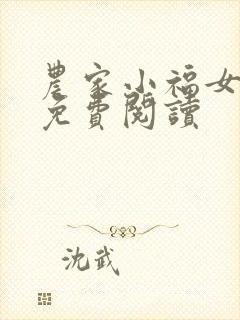 農家小福女
免費閱讀
沈武